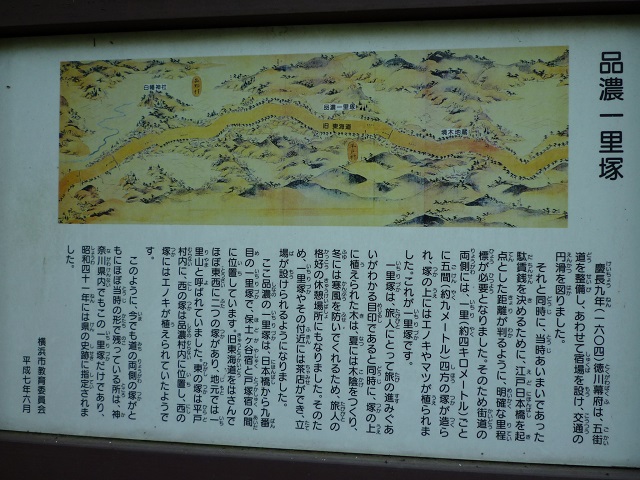 品濃一里塚
慶長九年(一六〇四)徳川幕府は、五街
道を整備し、あわせて宿場を設け、交通の
円滑を図りました。
それと同時に、当時あいまいであった
駄賃銭を決めるために、江戸日本橋を起
点とした距離が判るように、明確な里程
標が必要となりました。そのため街道の
両側には、一里(約四キロメートル)ごと
に五間(約九メートル)四方の塚が造ら
れ、塚の上にはエノキやマツが植えられま
した。これが一里塚です。
一里塚は、旅人にとって旅の進みぐあ
いがわかる目印であると同時に、塚の上
に植えられた木は、夏には木陰をつくり、
冬には寒風を防いでくれるため、旅人の
格好の休憩場所でもありました。そのた
め、一里塚やその付近には茶店ができ、立
場が設けられるようになりました。
ここ品濃の一里塚は、日本橋から九番
目の一里塚で、保土ヶ谷宿と戸塚宿の間
に位置しています。旧東海道をはさんで
ほぼ東西に二つの塚があり、地元では一
里山と呼ばれていました。東の塚は平戸
村内に、西の塚は品濃村内に位置し、西の
塚にはエノキが植えられていたようで
す。
このように、今でも道の両側の塚がと
もにほぼ当時の形で残っている所は、神
奈川県内でもこの一里塚だけであり、
昭和四十一年には県の史跡に指定されま
した。
横浜市教育委員会
平成七年六月
白幡神社
品濃一里塚
旧東海道
境木地蔵